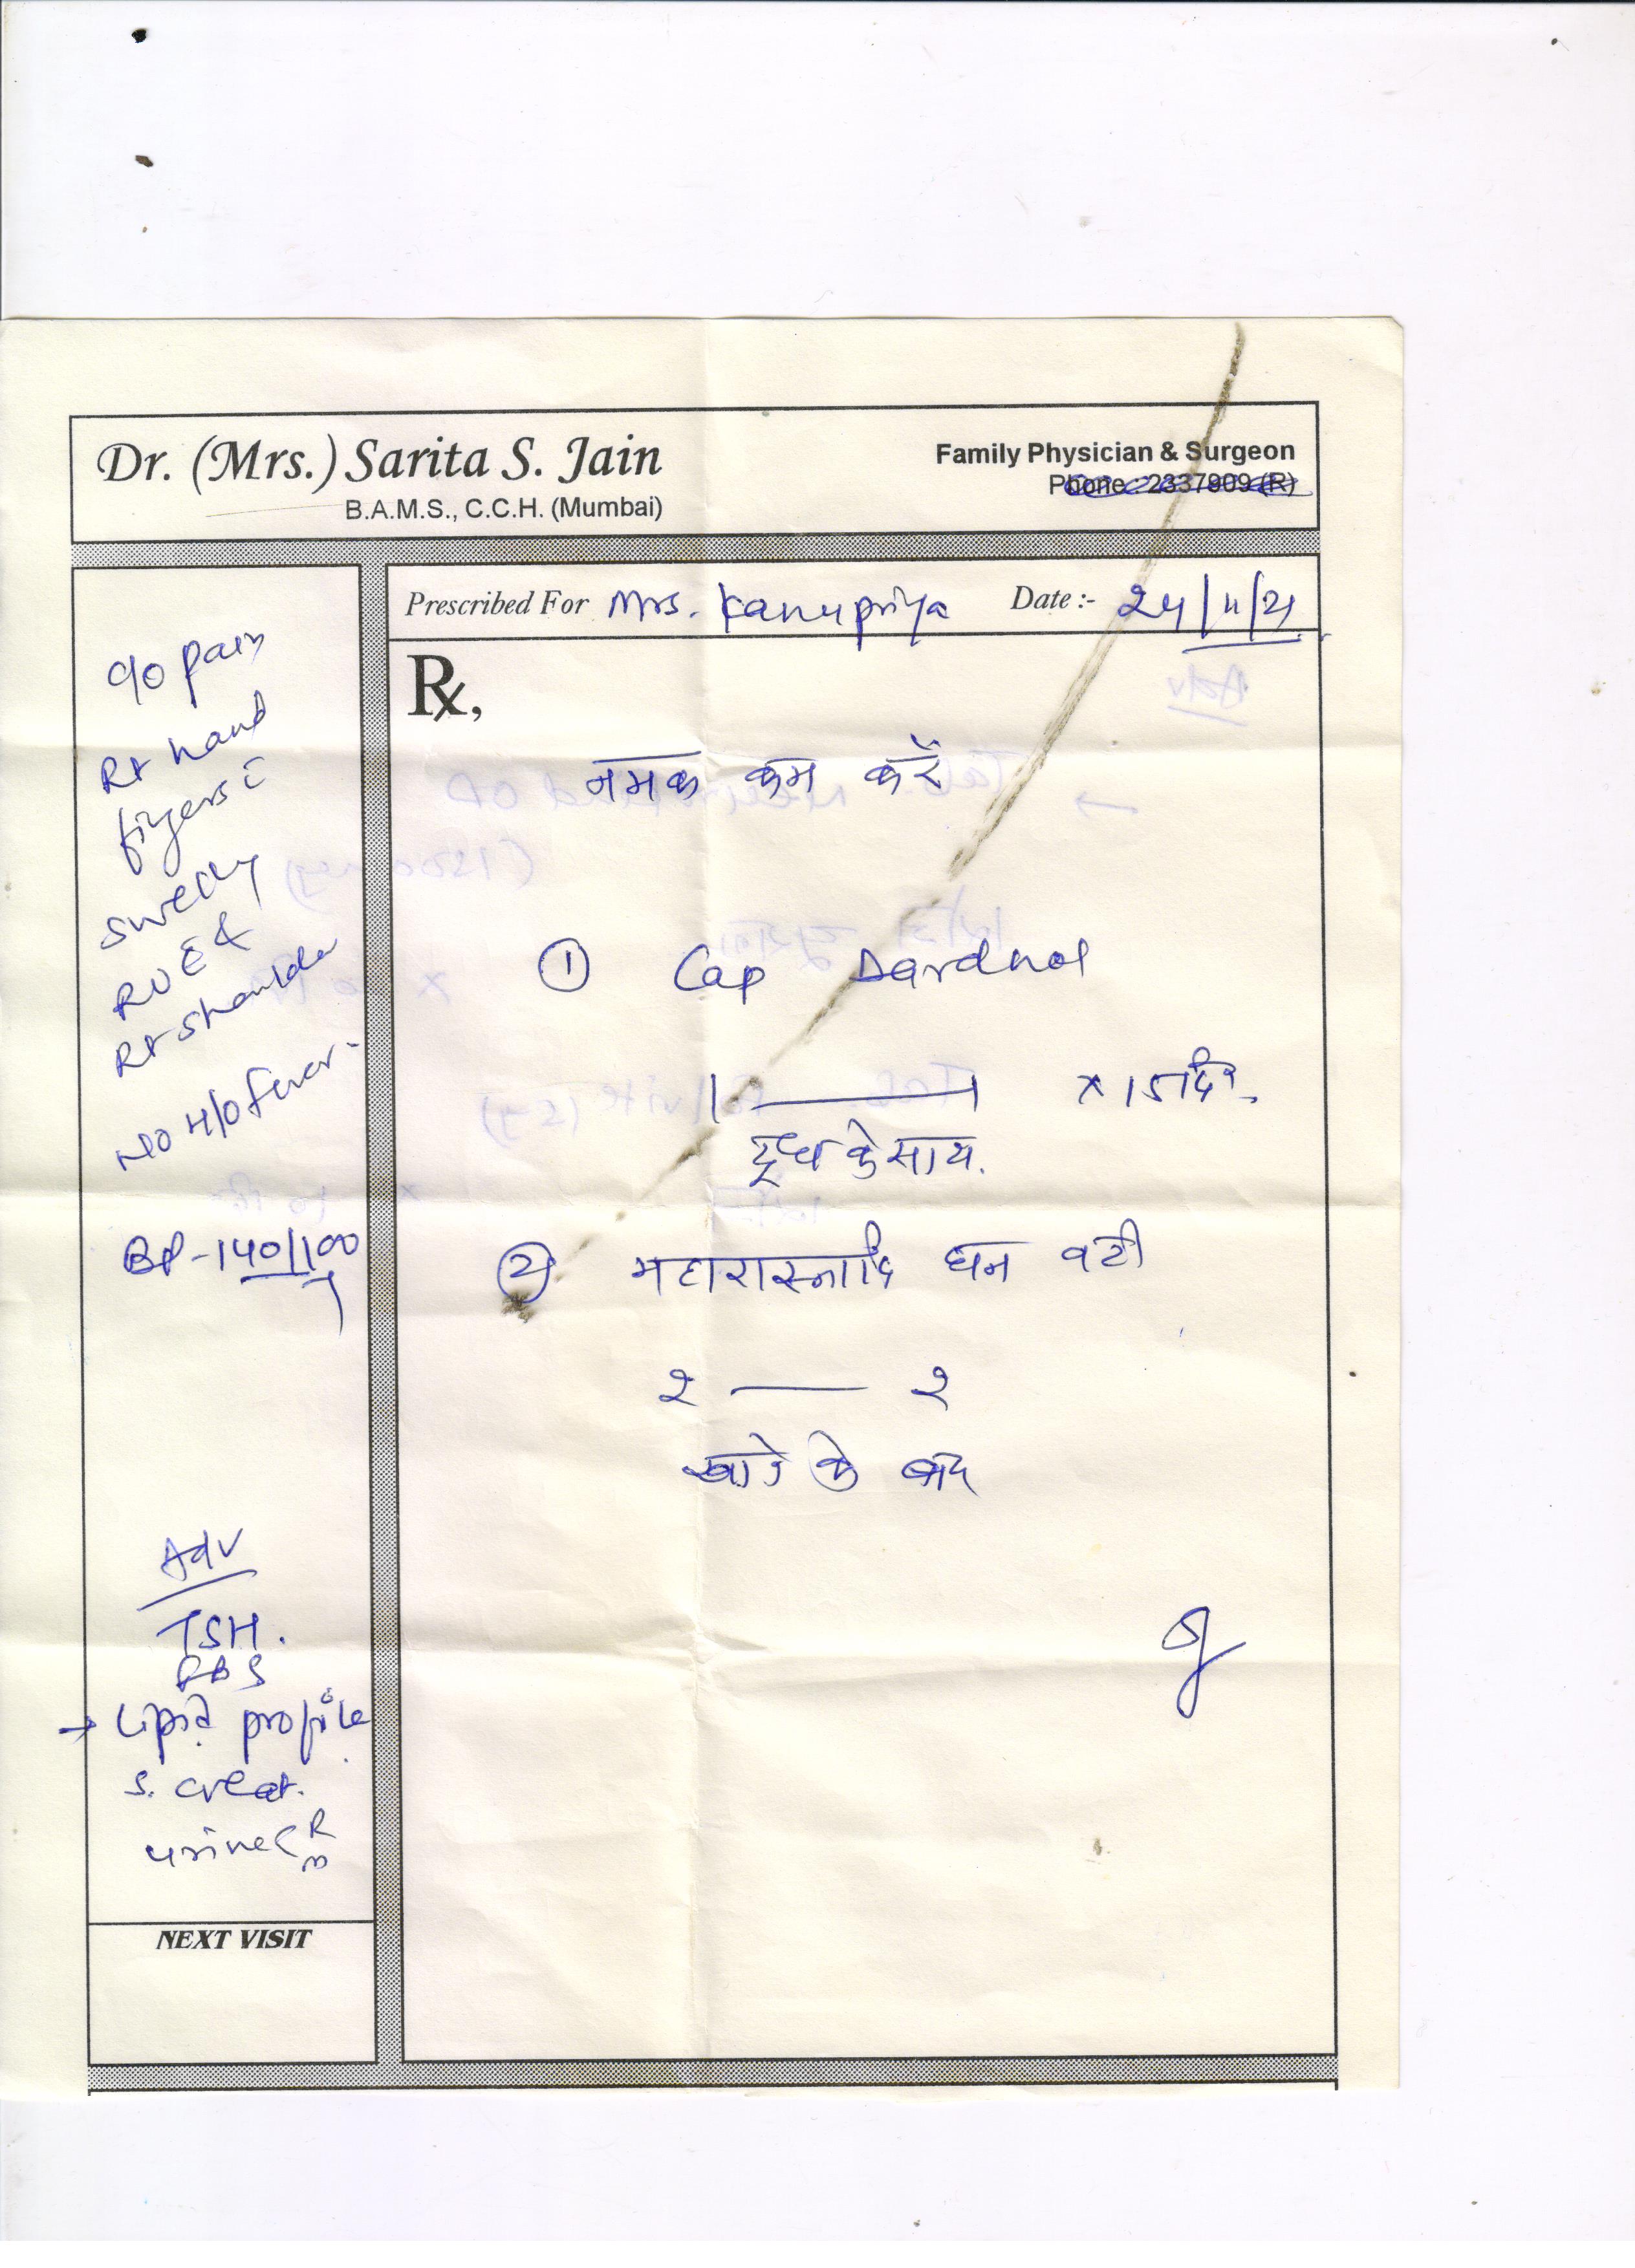 Dr. (Mrs.) Sarita S. Jain
B.A.M.S., C.C.H. (Mumbai)
Family Physician & Surgeon
Phone : 2337909 (R)
Prescribed For Mrs. Kanupriya Date :- 24/11/21
c/o pain
Rt hand
fingers c
swelling
RUE &
Rt shoulder
No H/o fever.
BP-140/100
Adv
TSH.
FBS
→ Lipid profile
S. creat.
urine R
m
NEXT VISIT
Rx,
नमक कम करें
① Cap Dardnol
1 — 1 x 15 दि.
दूध के साथ.
② महारास्नादि घन वटी
२ — २
खाने के बाद